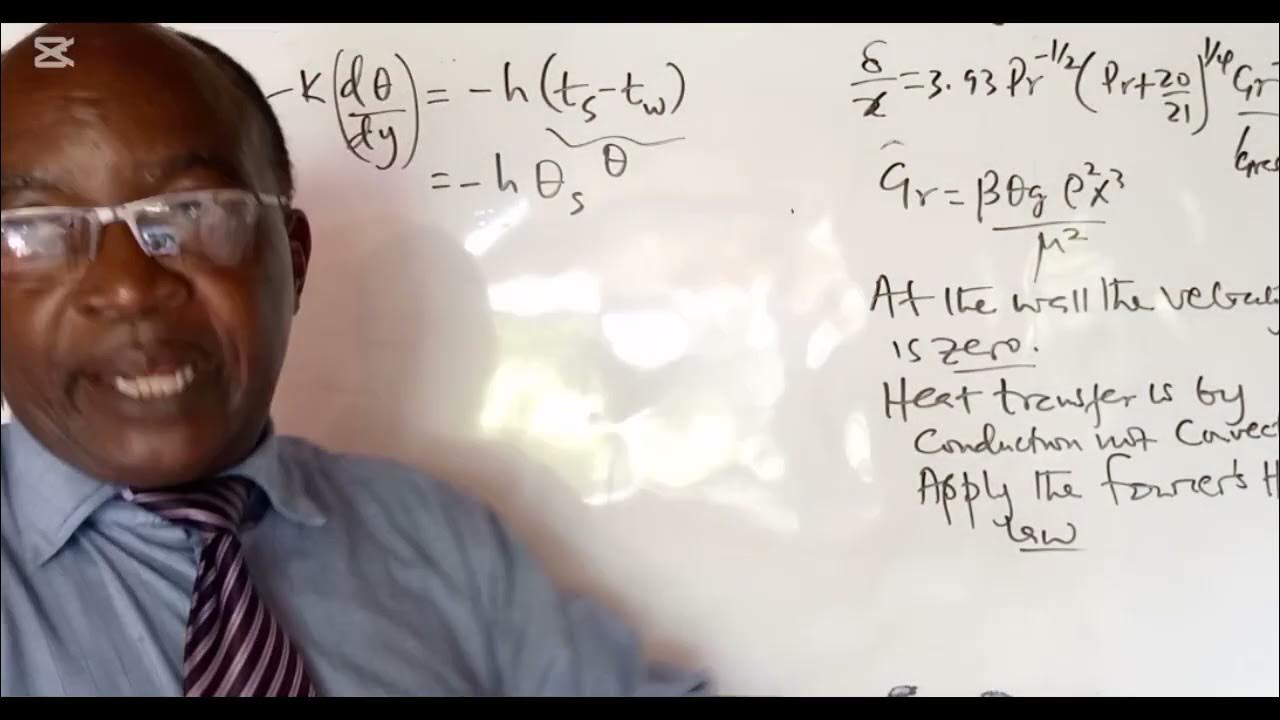 -K(dθ/dy) = -h(ts-tw)
θ
= -hθs
δ/x = 3.93 Pr^-1/2 (Pr+20/21)^1/4 Gr
Gr = βθg ρ²x³/μ²
At the wall the
is zero.
Heat transfer is by
Conduction not
Apply the fourier's H
law